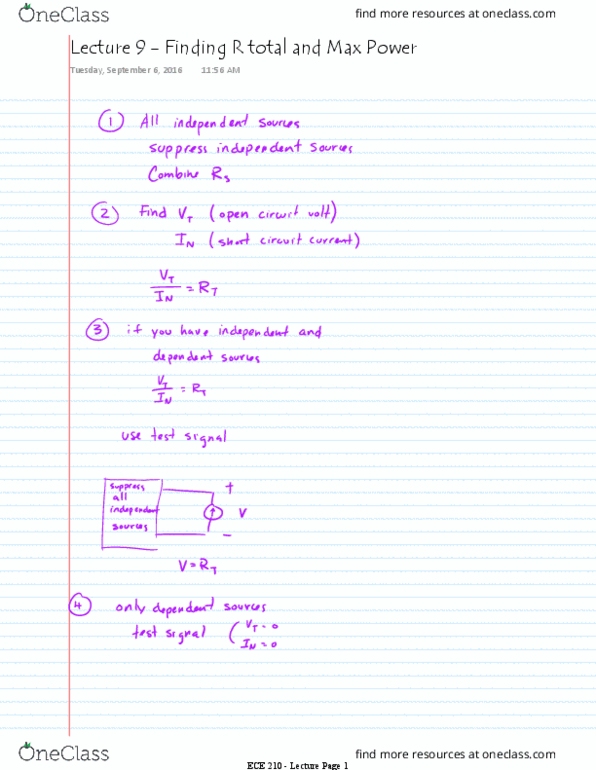 OneClass
find more resources at oneclass.com
Lecture 9 – Finding R total and Max Power
Tuesday, September 6, 2016 11:56 AM
① All independent sources
suppress independent sources
Combine Rs
② Find VT (open circuit volt)
IN (short circuit current)
VT/IN = RT
③ if you have independent and
dependent sources
VT/IN = RT
use test signal
suppress
all
independent
sources
+
↑
V
–
V = RT
④ only dependent sources
test signal (VT = 0
IN = 0
OneClass
find more resources at oneclass.com
ECE 210 - Lecture Page 1